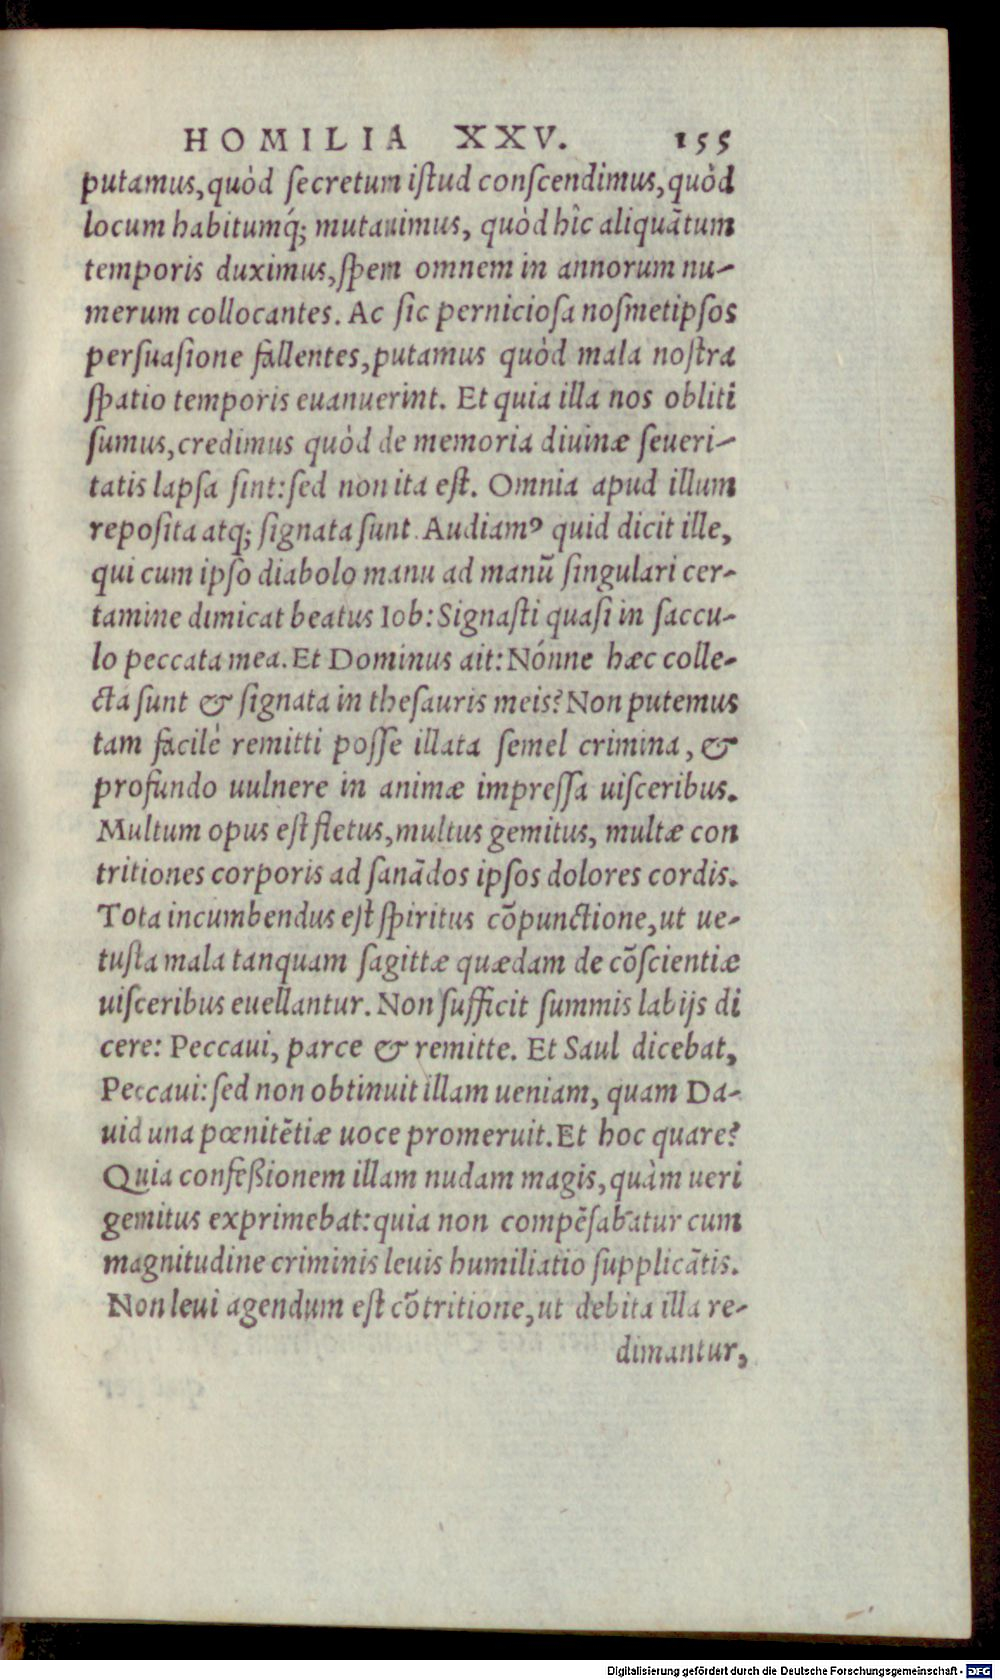 HOMILIA XXV. 155
putamus, quòd ſecretum iſtud conſcendimus, quòd
locum habitumq́; mutauimus, quòd hîc aliquãtum
temporis duximus, ſpem omnem in annorum nu-
merum collocantes. Ac ſic pernicioſa noſmetipſos
perſuaſione fallentes, putamus quòd mala noſtra
ſpatio temporis euanuerint. Et quia illa nos obliti
ſumus, credimus quòd de memoria diuinæ ſeueri-
tatis lapſa ſint: ſed non ita eſt. Omnia apud illum
repoſita atq; ſignata ſunt. Audiamꝰ quid dicit ille,
qui cum ipſo diabolo manu ad manũ ſingulari cer-
tamine dimicat beatus Iob: Signaſti quaſi in ſaccu-
lo peccata mea. Et Dominus ait: Nónne hæc colle-
cta ſunt & ſignata in theſauris meis? Non putemus
tam facilè remitti poſſe illata ſemel crimina, &
profundo uulnere in animæ impreſſa uiſceribus.
Multum opus eſt fletus, multus gemitus, multæ con
tritiones corporis ad ſanãdos ipſos dolores cordis.
Tota incumbendus eſt ſpiritus cõpunctione, ut ue-
tuſta mala tanquam ſagittæ quædam de cõſcientiæ
uiſceribus euellantur. Non ſufficit ſummis labijs di
cere: Peccaui, parce & remitte. Et Saul dicebat,
Peccaui: ſed non obtinuit illam ueniam, quam Da-
uid una pœnitẽtiæ uoce promeruit. Et hoc quare?
Quia confeßionem illam nudam magis, quàm ueri
gemitus exprimebat: quia non compẽſabatur cum
magnitudine criminis leuis humiliatio ſupplicãtis.
Non leui agendum eſt cõtritione, ut debita illa re-
dimantur,
Digitalisierung gefördert durch die Deutsche Forschungsgemeinschaft - DFG